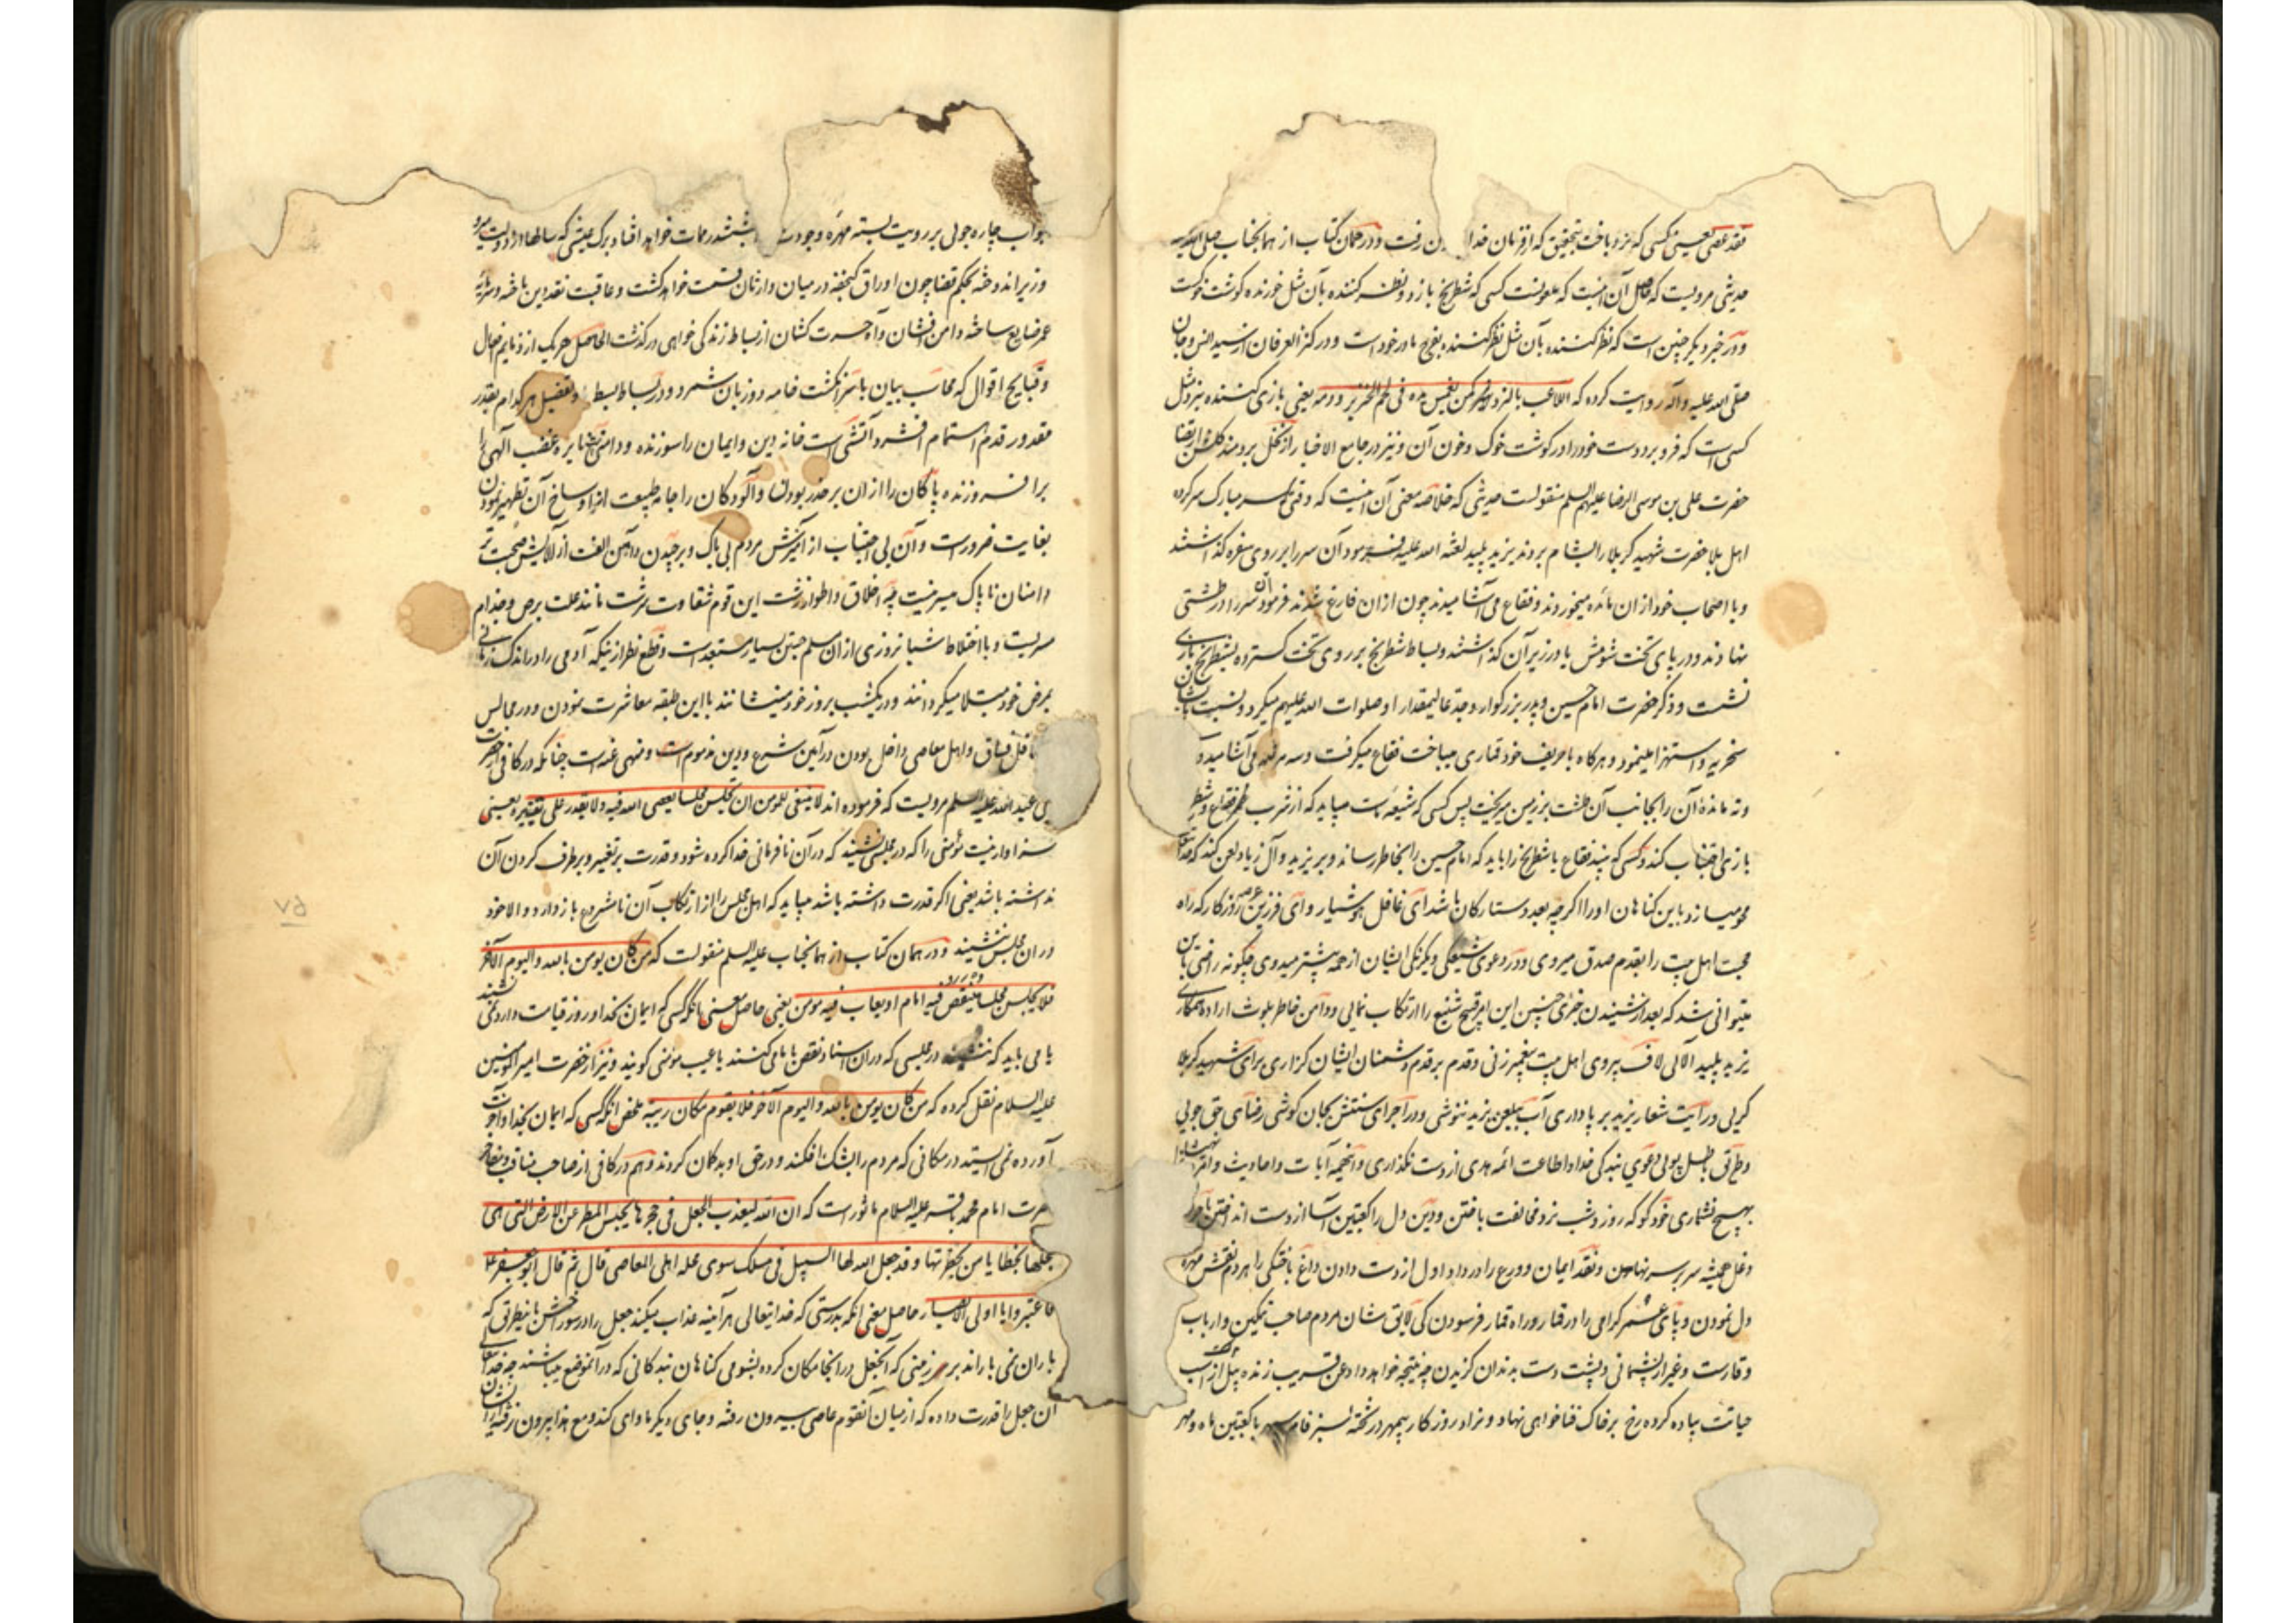 فقد عصی یعنی کسی که نرد باخت بتحقیق که از فرمان خدا رفت و در همان کتاب از همانجناب صلی الله علیه
حدیثی مرویست که حاصل آن اینست که ملعونست کسی که شطرنج بازد و نظر کننده بآن مثل خورنده گوشت خوکست
و در خبر دیگر چنین است که نظر کننده بآن مثل نظر کننده بفرج مادر خود است و در کنز العرفان از سید انس و جان
صلی الله علیه و آله روایت کرده که اللاعب بالنرد کمن غمس یده فی لحم الخنزیر و دمه یعنی بازی کننده بنرد مثل
کسی است که فرو برد دست خود را در گوشت خوک و خون آن و نیز در جامع الاخبار از نخل برومند گلشن ارتضا
حضرت علی بن موسی الرضا علیهم السلم منقولست حدیثی که خلاصه معنی آن اینست که وقتی که سر مبارک سرکرده
اهل بلا حضرت شهید کربلا را بشام بردند یزید پلید لعنه الله علیه فرمود آن سر را بر روی سفره گذاشتند
و با اصحاب خود از ان مائده میخوردند و فقاع می آشامیدند چون از ان فارغ شدند فرمود آن سر را در طشتی
نهادند و در پای تخت شومش یا در زیر آن گذاشتند و بساط شطرنج بر روی تخت گسترده بشطرنج بازی
نشست و ذکر حضرت امام حسین و پدر بزرگوار و جد عالیمقدار او صلوات الله علیهم میکرد و نسبت بایشان
سخریه و استهزا مینمود و هر گاه با حریف خود قماری میباخت فقاع میگرفت و سه مرتبه می آشامید و
ته مانده آن را بجانب آن طشت بر زمین میریخت پس کسی که شیعه ماست میباید که از شرب فقاع و شطرنج
بازی اجتناب کند و کسی که بیند فقاع یا شطرنج را باید که امام حسین را بخاطر رساند و بر یزید و آل زیاد لعن کند که خدا
محو میسازد باین گناهان او را اگر چه بعدد ستارگان باشد ای غافل هوشیار و ای فرزین عرصه روزگار که راه
محبت اهل بیت را بقدم صدق میروی و در دعوی شیعگی و یکرنگی ایشان از همه پیشتر میدوی چگونه راضی باین
میتوانی شد که بعد از شنیدن خبری چنین این امر قبیح شنیع را ارتکاب نمائی و دامن خاطر بلوث اراده همکاری
یزید پلید آلائی لاف پیروی اهل بیت پیغمبر زنی و قدم بر قدم دشمنان ایشان گذاری برای شهید کربلا
گریی و رایت شعار یزید بر پا داری آب بلعن یزید ننوشی و در اجرای سنتش بجان کوشی رضای حق جویی
و طریق باطل پوئی دعوی بندگی خدا و اطاعت ائمه هدی از دست نگذاری و اینهمه آیات و احادیث و
بهیچ نشماری خود گو که روز و شب نرد مخالفت باختن و دین و دل را کعبتین آسا از دست انداختن
دغل همیشه سر بسر نهادن و نقد ایمان و ورع را در داو اول از دست دادن داغ باختگی را هر دم نقش مهره
دل نمودن و پای عمر گرامی را در قمار و راه قمار فرسودن کی لایق شان مردم صاحب تمکین و ارباب
وقارست و غیر از پشیمانی و پشت دست بدندان گزیدن چه نتیجه خواهد داد عن قریب زنده پیل از اسب
حیاتت پیاده کرده رخ بر خاک فنا خواهی نهاد و نراد روزگار بیمهر در تخته سبز فام سپهر با کعبتین ماه و مهر
جواب چاره جوئی بر رویت بسته مهره وجودت بششدر ممات خواهد افتاد برگ عیشی که سالها از دولت میر و
وزیر اندوخته بحکم قضا چون اوراق گنجفه در میان وارثان قسمت خواهد گشت و عاقبت نقد دین باخته و سرمایه
عمر ضایع ساخته دامن افشان و آه حسرت کشان از بساط زندگی خواهی در گذشت الحاصل هر یک از ذمایم افعال
و قبایح اقوال که محاسب بیان با سر انگشت خامه دو زبان شمرد و در بساط بسط و تفصیل هر کدام بقدر
مقدور قدم اهتمام افشرد آتشی است خانه دین و ایمان را سوزنده و دامنی نایره غضب الهی را
بر افروزنده پاکان را از ان بر حذر بودن و آلودگان را جامه طبیعت از اوساخ آن تطهیر نمودن
بغایت ضرورست و آن بی اجتناب از آمیزش مردم بی باک و برچیدن دامن الفت از آلایش صحبت تر
دامنان ناپاک میسر نیست چه اخلاق و اطوار زشت این قوم شقاوت سرشت مانند علت برص و جذام
مسریست و با اختلاط شبانروزی از ان سلم جستن بسیار مستبعد است و قطع نظر از نیکه آدمی را در اندک زمانی
بمرض خود مبتلا میگردانند و در یکشب بروز خود مینشانند با این طبقه معاشرت نمودن و در مجالس
محافل فساق و اهل معاصی داخل بودن در آیین شرع و دین مذموم است و منهی عنه است چنانکه در کافی از حضرت
ابی عبد الله علیه السلم مرویست که فرموده اند لا ینبغی للمؤمن ان یجلس مجلسا یعصی الله فیه و لا یقدر علی تغییره یعنی
سزاوار نیست مؤمنی را که در مجلسی نشیند که در آن نافرمانی خدا کرده شود و قدرت بر تغییر و بر طرف کردن آن
نداشته باشد یعنی اگر قدرت داشته باشد میباید که اهل مجلس را از ارتکاب آن نامشروع باز دارد و الا خود
در ان مجلس ننشیند و در همان کتاب از همانجناب علیه السلم منقولست که من کان یؤمن بالله و الیوم الآخر
فلا یجلس مجلسا ینتقص فیه امام او یعاب فیه مؤمن یعنی حاصل معنی آنکه کسی که ایمان بخدا و روز قیامت دارد نمی نشیند
یا می باید که ننشیند در مجلسی که در ان اسناد نقص بامامی کنند یا عیب مؤمنی گویند و نیز از حضرت امیر المؤمنین
علیه السلام نقل کرده که من کان یؤمن بالله و الیوم الآخر فلا یقوم مکان ریبة ملخص آنکه کسی که ایمان بخدا و آخرت
آورده نمی ایستد در مکانی که مردم را بشک افکند و در حق او بد گمان گردند و هم در کافی از صاحب مناقب و مفاخر
حضرت امام محمد باقر علیه السلام ماثور است که ان الله لیعذب الجعل فی جحرها بحبس المطر عن الارض التی هی
بمحلها بخطایا من بحضرتها و قد جعل الله لها السبیل فی مسلک سوی محله اهل المعاصی قال ثم قال ابو جعفر ع
فاعتبروا یا اولی الابصار حاصل معنی آنکه بدرستی که خدایتعالی هر آینه عذاب میکند جعل را در سوراخش باینطریق که
باران نمی باراند بر زمینی که آنجعل در انجا مکان کرده بشومی گناهان بندگانی که در آنموضع میباشند چه خدایتعالی
آن جعل را قدرت داده که از میان آنقوم عاصی بیرون رفته و جای دیگر ماوای کند و مع هذا بیرون نرفته
۶۷